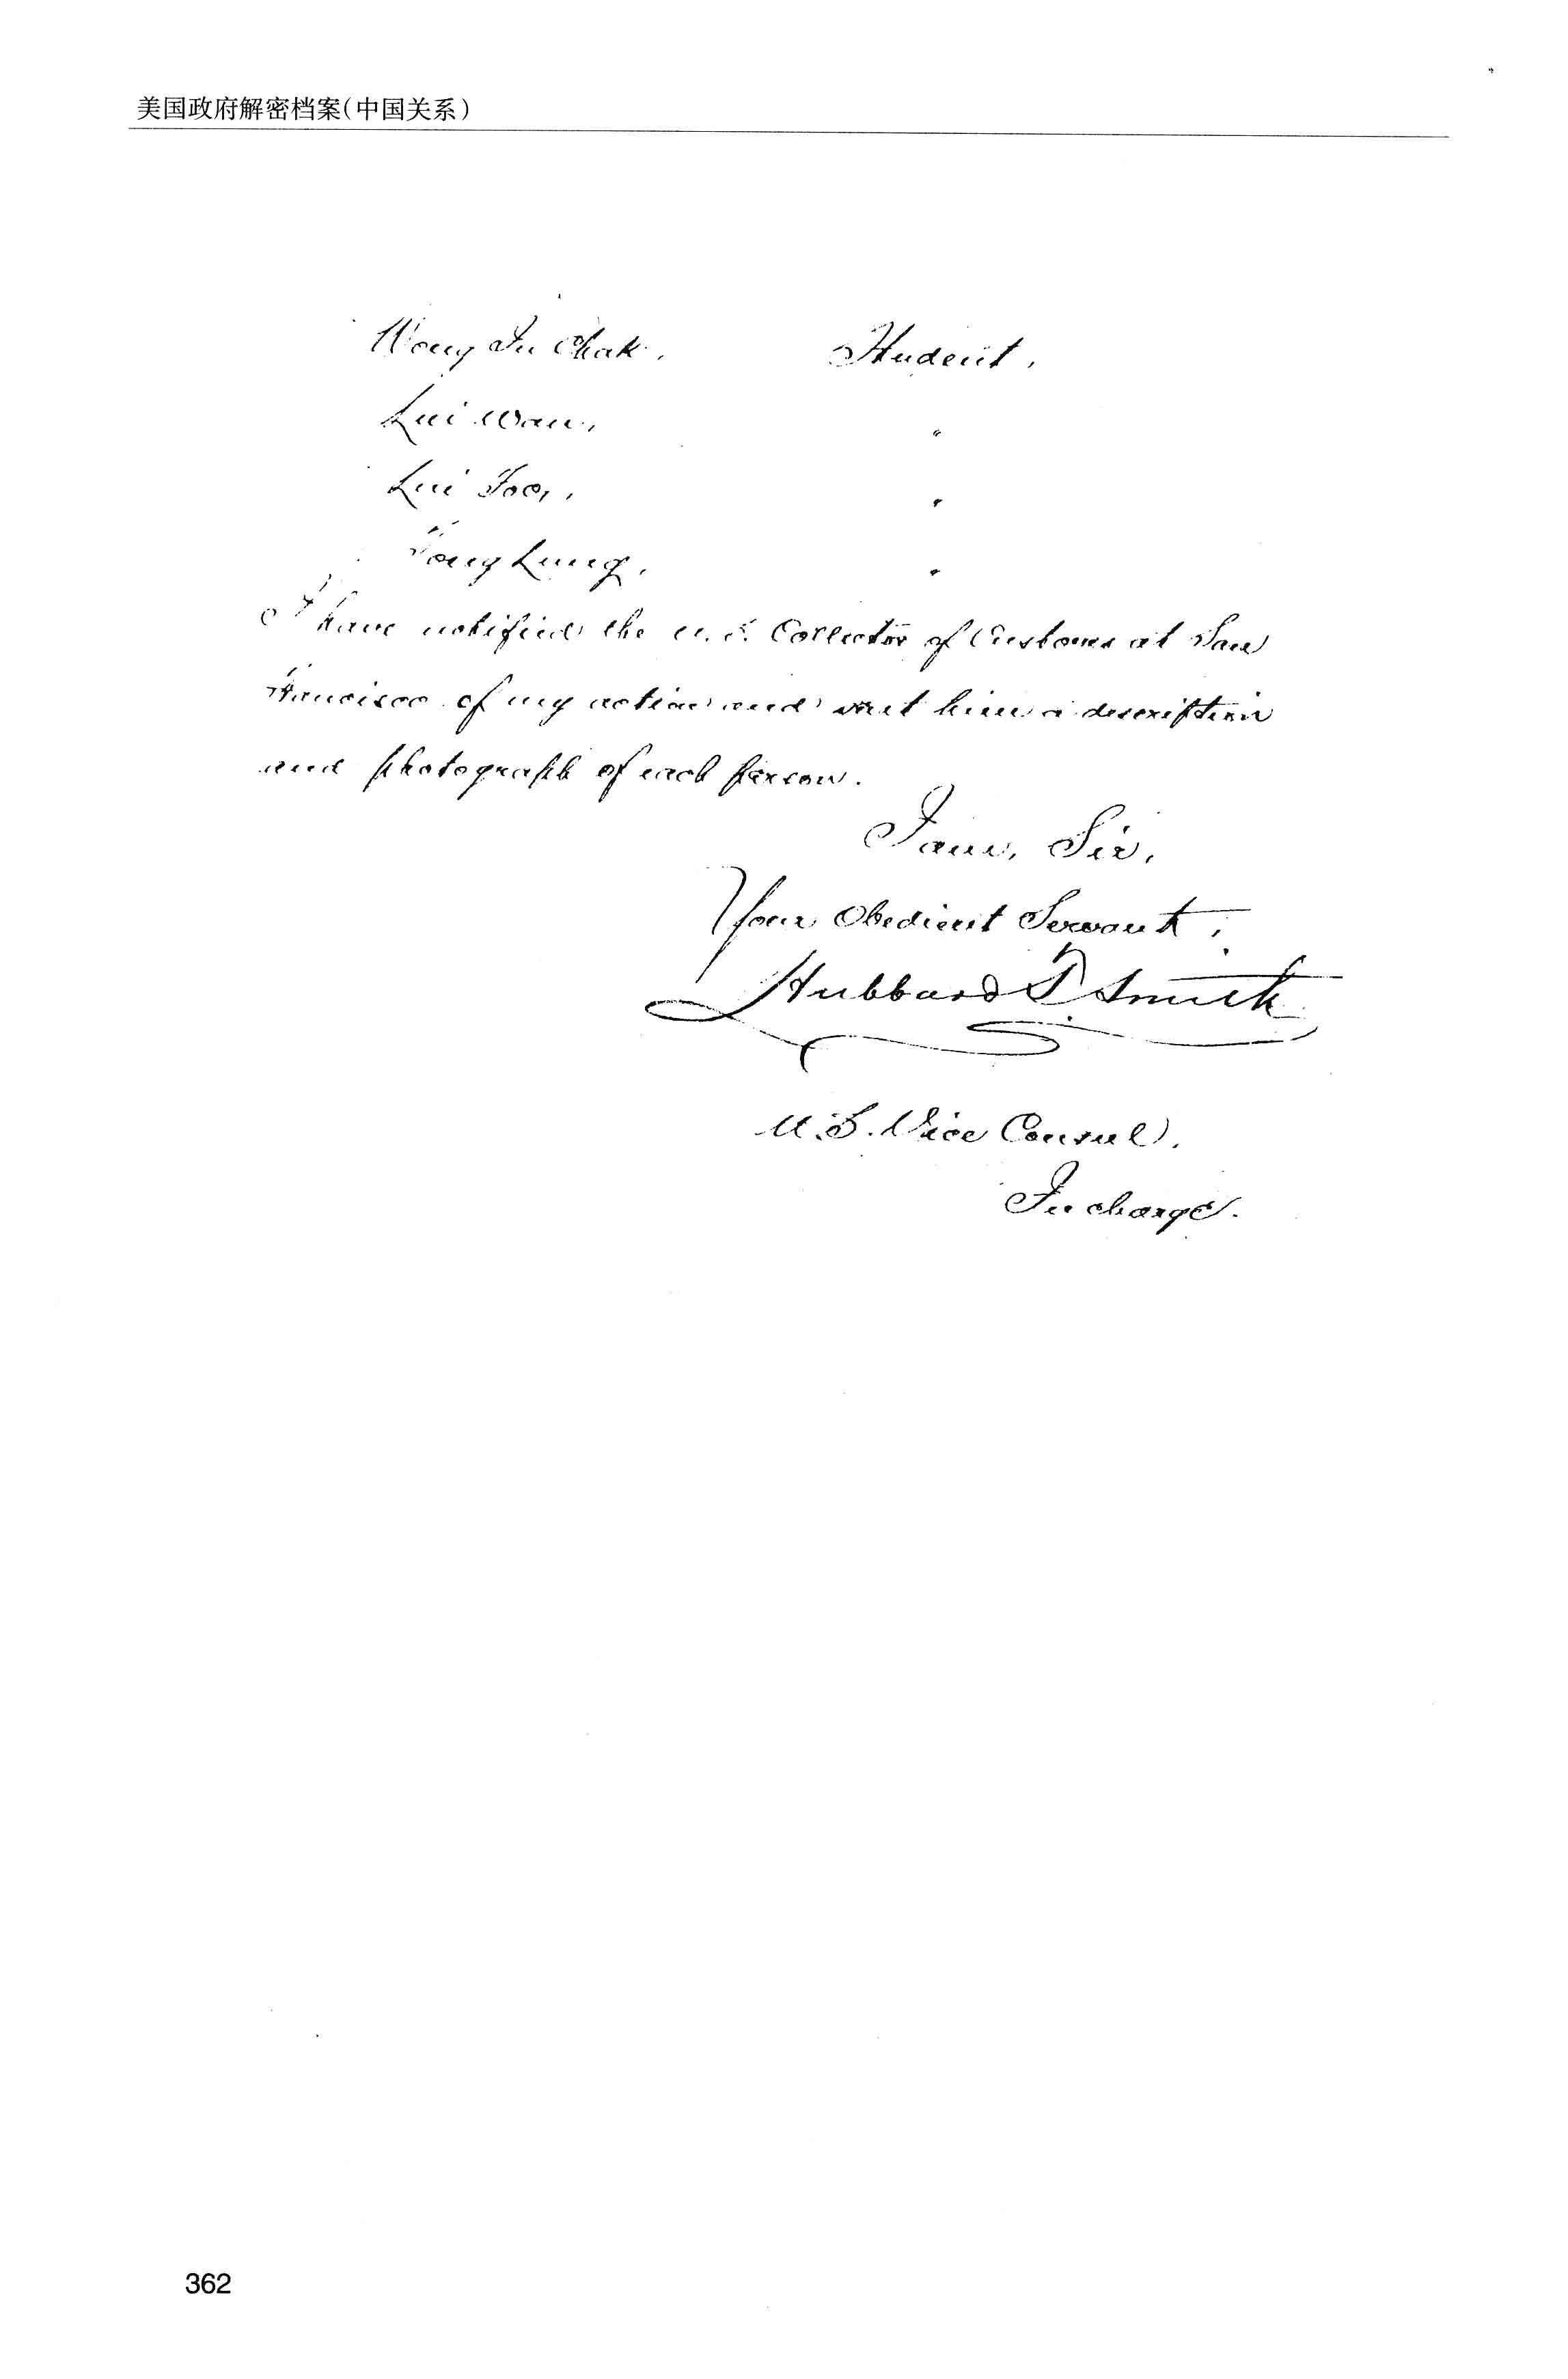 美国政府解密档案(中国关系)
Wong Fu Chak. Student.
Lui Wan, "
Lui Foo, "
Tong Lung. "
I have notified the U.S. Collector of Customs at San
Francisco of my action and sent him a description
and photograph of each person.
I am, Sir,
Your Obedient Servant,
Hubbard T. Smith
U.S. Vice Consul.
In charge.
362